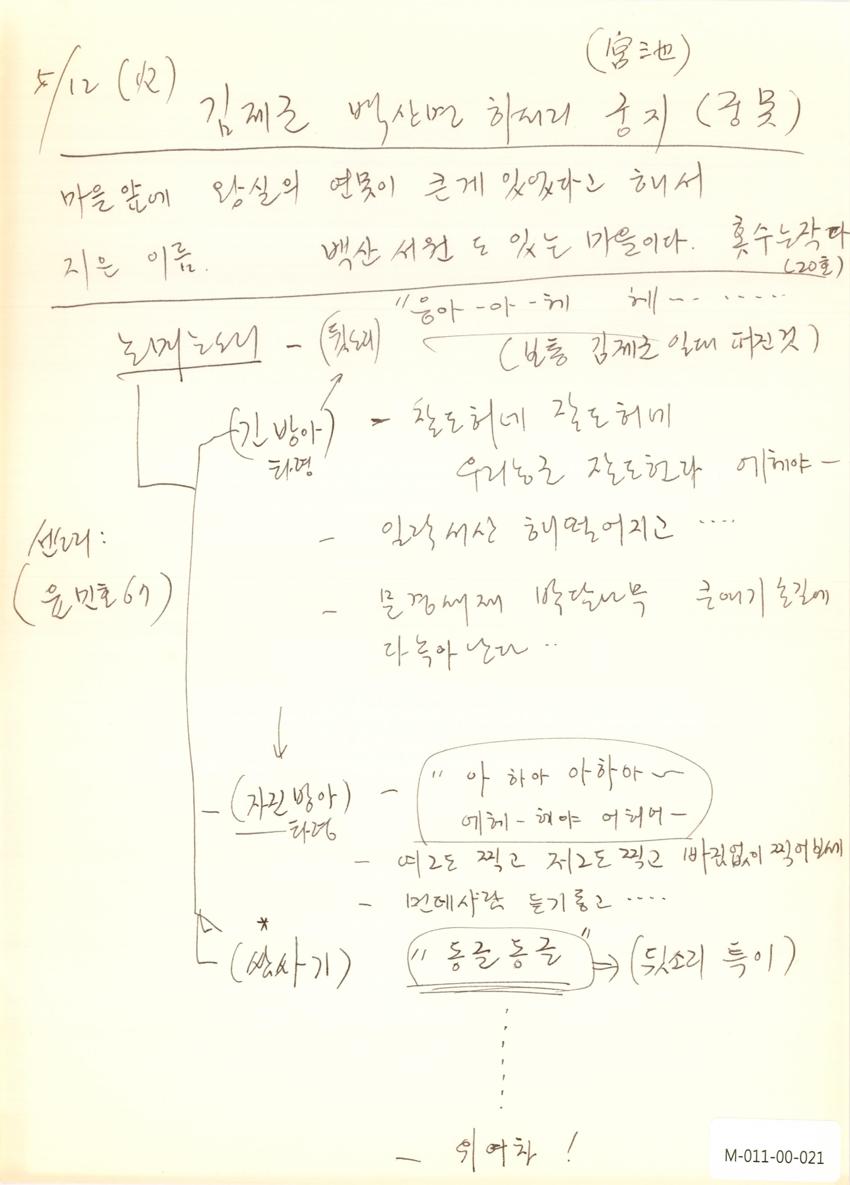 5/12 (火)
(宮池)
김제군 백산면 하정리 궁지 (궁못)
마을앞에 왕실의 연못이 큰게 있었다고 해서
지은 이름. 백산서원도 있는 마을이다. 홋수는작다
(20호)
논매는소리 - (뒷소리) "응아-아-헤 헤---.....
(보통 김제군 일대 퍼진것)
(긴방아) - 잘도허네 잘도허네
타령
우리농군 잘도헌다 에헤야-
- 일락서산 해떨어지고 ....
센소리:
(윤민호 67)
- 문경새재 박달나무 큰애기 손길에
다녹아난다 ..
- (자진방아) - " 아 하아 아하아~
타령
에헤-헤야 어허어-
- 여그도 찍고 저그도 찍고 바짐없이 찍어보세
- 먼데사람 듣기좋고 ....
*
(쌈싸기) "둥글둥글" → (뒷소리 특이)
- 위여차 !
M-011-00-021